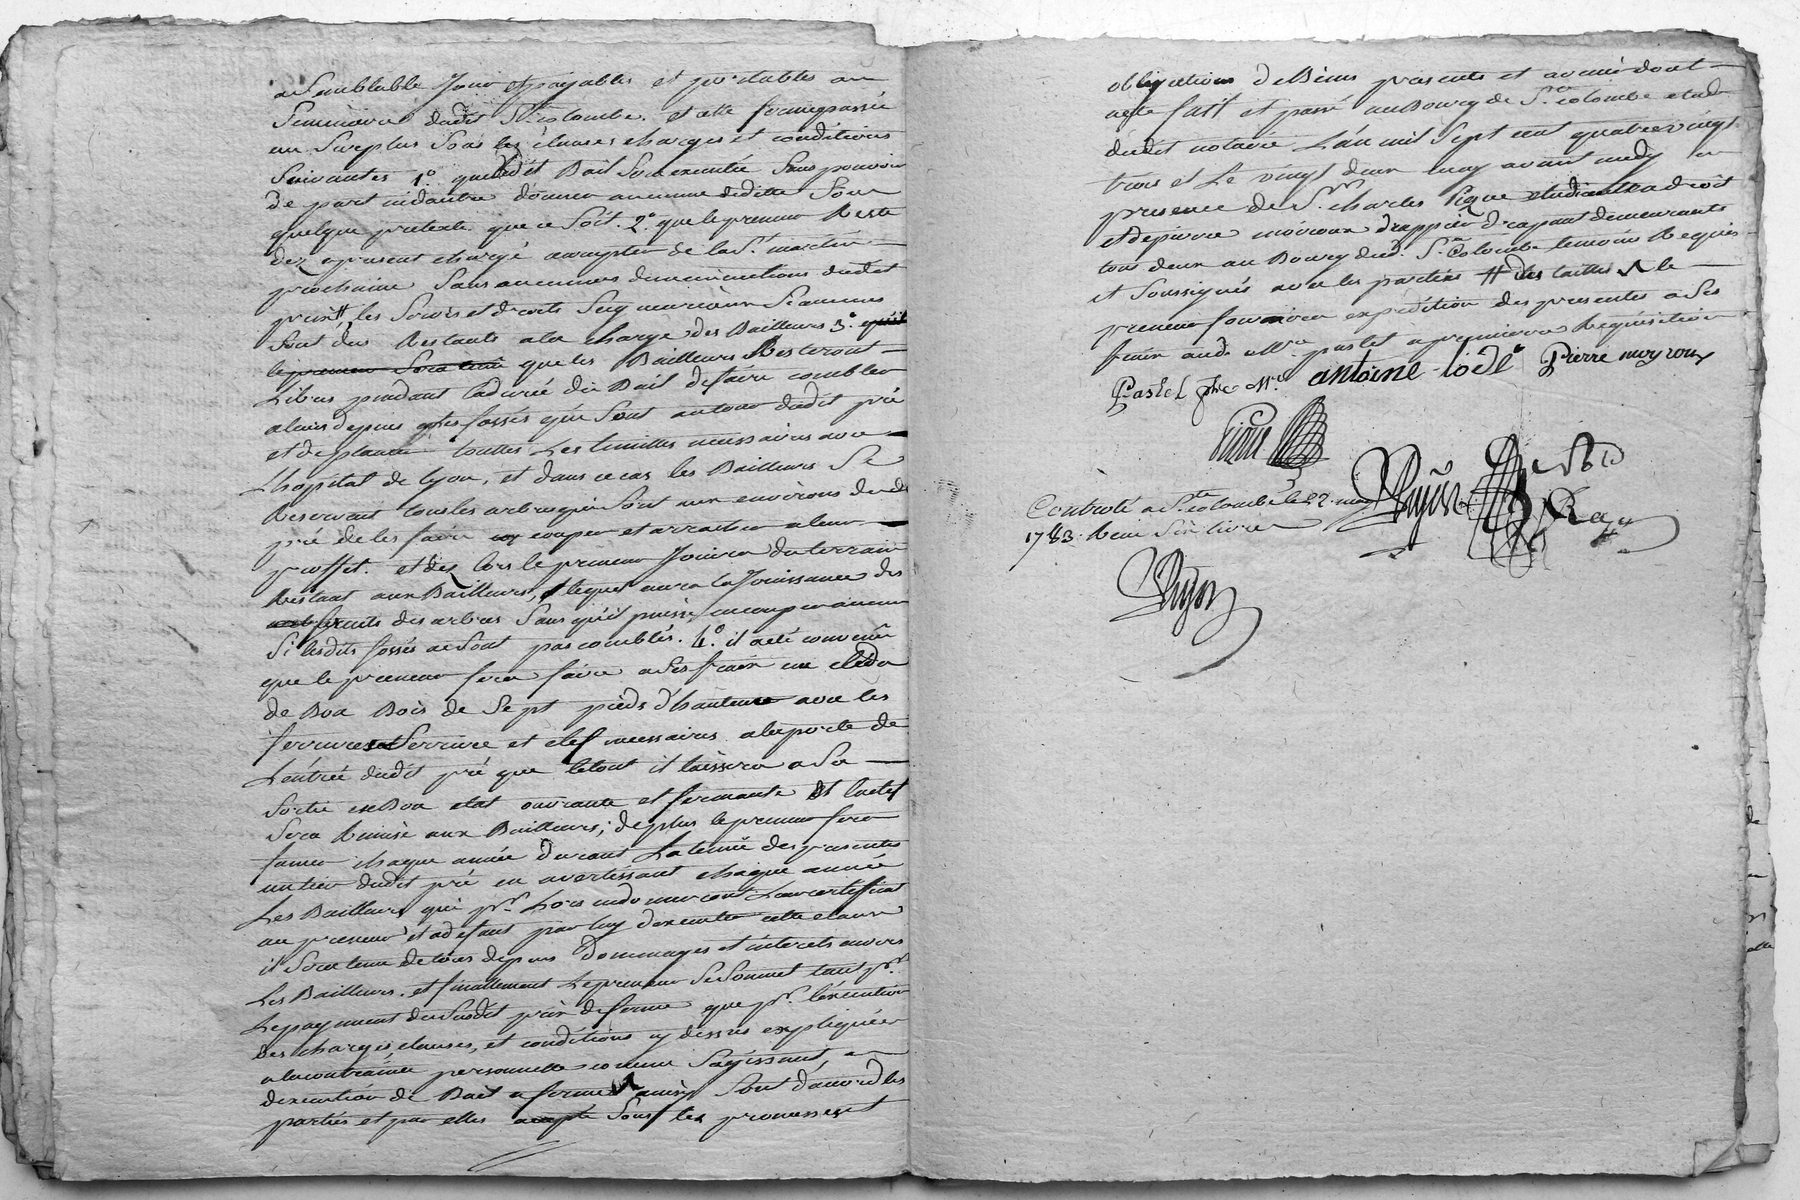 a Semblable Jour et payables et portables au
Seminaire dudit Ste colombe. et cette ferme passée
au Surplus Sous les clauses charges et conditions
Suivantes 1° que ledit Bail Sera executé Sans pouvoir
de part nidautre donner aucune deditte Sous
quelque pretexte que ce Soit. 2° que le preneur Reste
dez apresent chargé acompter de la St. martin
prochaine Sans aucunes diminutions dudit
prix # les Servis et droits Seigneuriaux Si aucuns
Sont dus Restants ala charge des Bailleurs 3° quil
le preneur Sera tenu que les Bailleurs Resteront
Libres pendant la durée du Bail de faire combler
aleurs depens les fossés qui Sont autour dudit pré
et de planter touttes Les limittes necessaires avec
L'hopital de Lyon, et dans ce cas les Bailleurs Se
Reservent tous les arbres qui Sont aux environs dudit
pré de les faire couper et arracher a leur
proffit. et dez lors le preneur Jouira du terrain
Restant aux Bailleurs, lequel aura la Jouissance des
fruits des arbres Sans quil puisse en couper aucun
Si lesdits fossés ne Sont pas comblés. 4° il a eté convenu
que le preneur fera faire a Ses fraix une cléda
de Bon Bois de Sept pieds d'hauteur avec les
ferrures et Serrure et clef necessaires a la porte de
L'entrée dudit pré que letout il laissera a Sa
Sortie en Bon etat ouvrante et fermante et la clef
Sera Remise aux Bailleurs; de plus le preneur fera
fumer chaque année durant La tenue des presentes
un tier dudit pré en avertissant chaque année
Les Bailleurs qui pr. Lors endonneront Leur certifficat
au preneur et a defaut par luy dexecuter cette clause
il Sera tenu de tous depens dommages et interets envers
Les Bailleurs. et finallement Le preneur Se Soumet tant pr.
Le payement du Susdit prix de ferme que pr. l'execution
des charges clauses, et conditions cy dessus expliquées
a la contrainte personnelle comme Sagissant
dexecution de Bail a ferme ainsy Sont d'accord les
parties et par elles accepté Sous les promesses et
obligations de Biens presents et avenir dont
acte fait et passé au Bourg de Ste colombe etude
dudit notaire L'an mil Sept cent quatre vingt
trois et Le vingt deux may avant midy en
presence de Sr. charles Pique etudiant en droit
et de pierre meyroux drappier drapant demeurants
tous deux au Bourg dud. Ste Colombe temoins Requis
et Soussignés avec les parties # des tailles le
preneur fournira expedition des presentes a Ses
fraix aud. Mre paslet a premiere Requisition
Paslet Antoine lode Pierre meyroux
Pique
Controlé a Ste colombe le 22 may
1783. Reçu Six livres